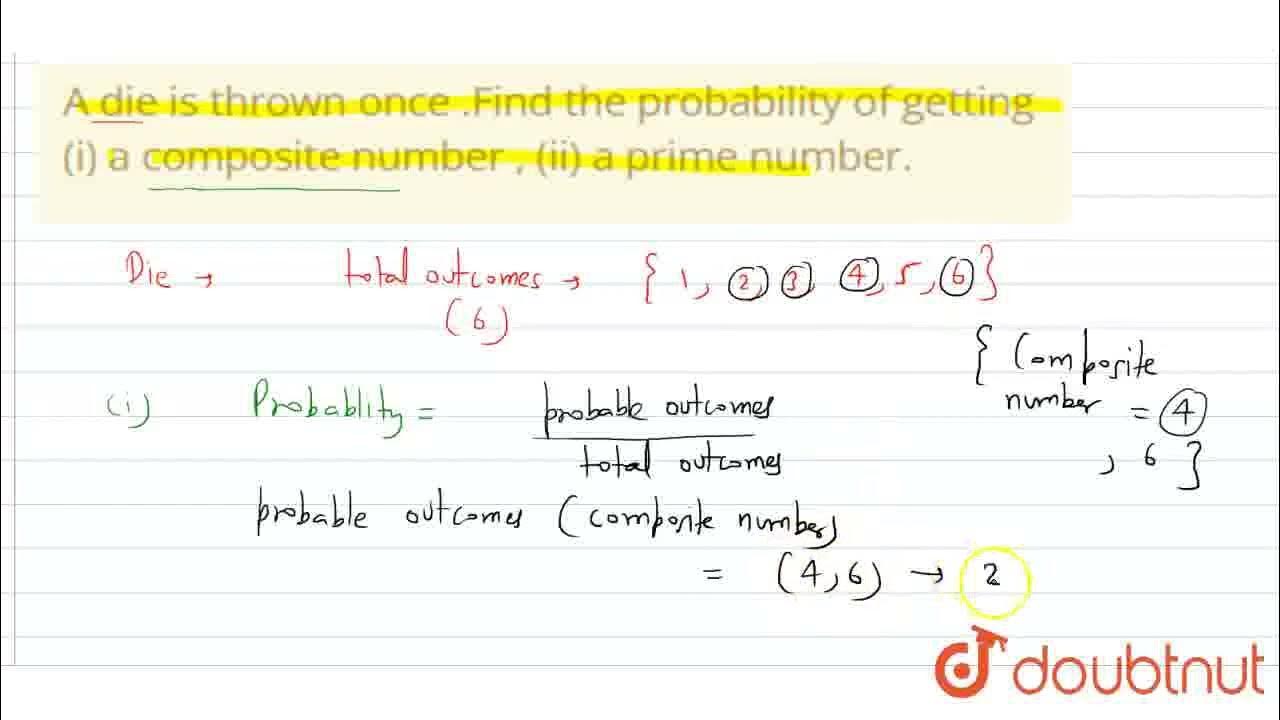 A die is thrown once .Find the probability of getting
(i) a composite number , (ii) a prime number.
Die → total outcomes → { 1, 2, 3, 4, 5, 6 }
(6)
{ Composite
number = 4
, 6 }
(i) Probablity = probable outcomes
total outcomes
probable outcomes (composite number)
= (4, 6) → 2
doubtnut